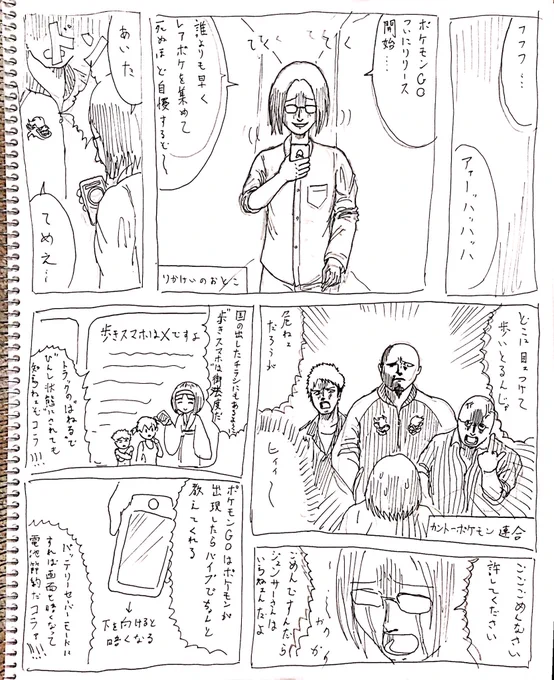 フフフ…
アァーッハッハッハ
ポケモンGO
ついにリリース
開始…
誰よりも早く
レアポケを集めて
死ぬほど自慢するで〜
りかけいのおとこ
ドンッ
あいた
てめえ…
どこに目ェつけて
歩いとるんじゃ
危ねェ
だろうが
ヒィィ〜
カントーポケモン連合
国の出したチラシにもあるよう
歩きスマホは御法度だ
歩きスマホは×ですよ
トラックの"はねる"で
"ひんし状態"にされても
知らねェぞコラ!!!
ごごごごめんなさい
許してください
ごめんですんだら
ジュンサーさんは
いらねェんだよ
ポケモンGOはポケモンが
出現したらバイブでちゃんと
教えてくれる
↓
下を向けると
暗くなる
バッテリーセーバーモードに
すれば画面も暗くなって
電池節約だコラァ!!!